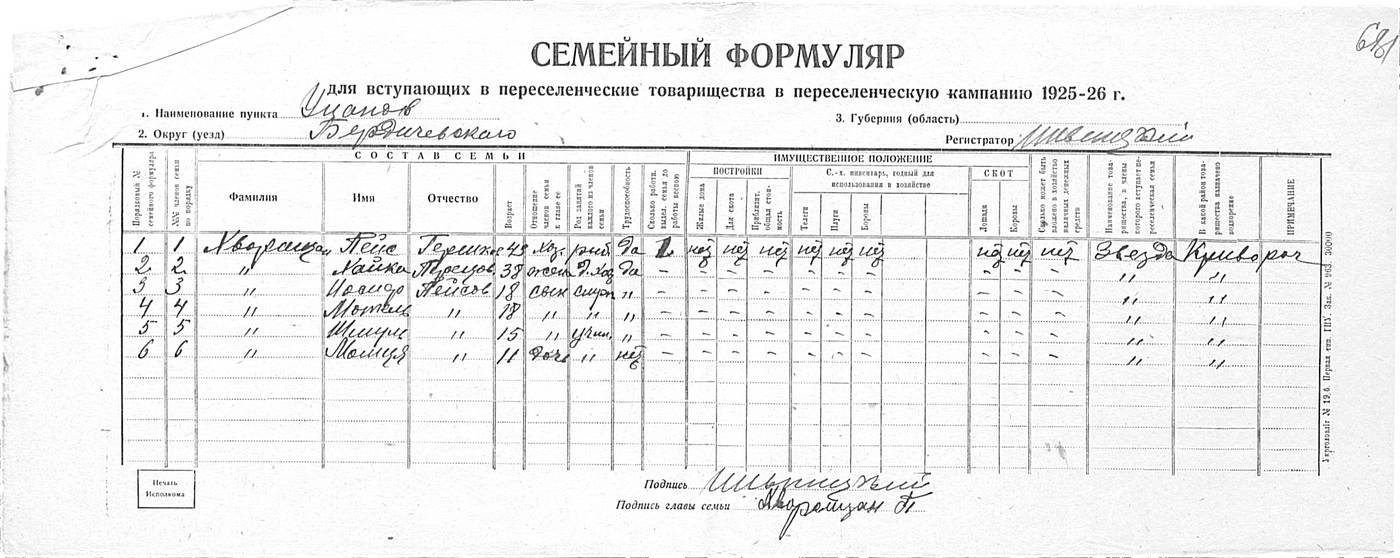 681
СЕМЕЙНЫЙ ФОРМУЛЯР
для вступающих в переселенческие товарищества в переселенческую кампанию 1925-26 г.
1. Наименование пункта
3. Губерния (область)
2. Округ (уезд) Бердичевского
Регистратор
СОСТАВ СЕМЬИ ИМУЩЕСТВЕННОЕ ПОЛОЖЕНИЕ
ПОСТРОЙКИ С.-х. инвентарь, годный для использования в хозяйстве СКОТ
Порядковый № семейного формуляра
№№ членов семьи по порядку
Фамилия
Имя
Отчество
Возраст
Отношение членов семьи к главе ее
Род занятий каждого из членов семьи
Трудоспособность
Сколько работн. выдел. семья до работы весною
Жилые дома
Для скота
Приблизит. общая стоимость
Телеги
Плуги
Бороны
Лошади
Коровы
Сколько может быть вложено в хозяйство наличных денежных средств
Наименование товарищества, в члены которого вступает переселенческая семья
В какой район товарищества назначено водворение
ПРИМЕЧАНИЕ
1 1 Пейс Гершков 49 хоз. да 1 нет нет нет нет нет нет нет нет нет Звезда Кривороч
2 2 " Хайка 38 жена д. хоз да – – – – – – – – – – " "
3 3 " Пейсов 18 сын " – – – – – – – – – – " "
4 4 " Мотель " 18 " " " – – – – – – – – – – " "
5 5 " Шмуль " 15 " учен. " – – – – – – – – – – " "
6 6 " " 11 дочь " нет – – – – – – – – – – " "
Укрголовліт № 19,6. Первая тип. ГПУ. Зак. № 963 30000
Печать Исполкома
Подпись
Подпись главы семьи